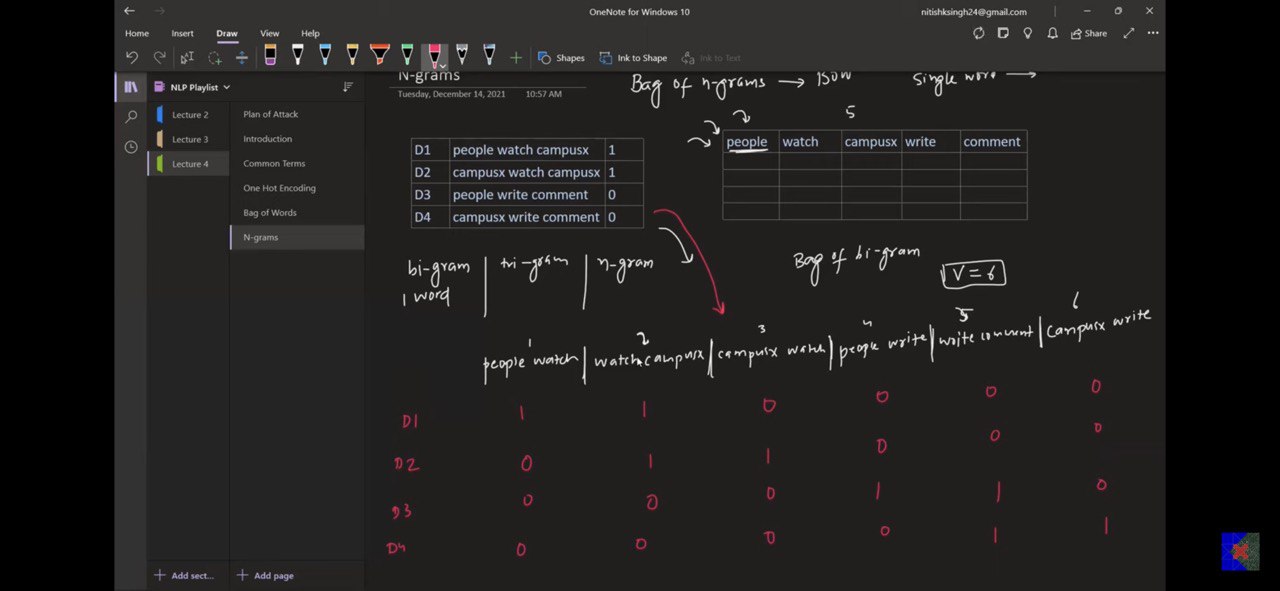 OneNote for Windows 10
nitishksingh24@gmail.com
Home Insert Draw View Help
Share
Shapes Ink to Shape Ink to Text
NLP Playlist
Lecture 2
Lecture 3
Lecture 4
Plan of Attack
Introduction
Common Terms
One Hot Encoding
Bag of Words
N-grams
Add sect...
Add page
N-grams
Tuesday, December 14, 2021 10:57 AM
Bag of n-grams → BOW single word →
5
D1 people watch campusx 1
D2 campusx watch campusx 1
D3 people write comment 0
D4 campusx write comment 0
people watch campusx write comment
bi-gram | tri-gram | n-gram
1 word
Bag of bi-gram
V = 6
1 2 3 4 5 6
people watch | watch campusx | campusx watch | people write | write comment | campusx write
D1 1 1 0 0 0 0
D2 0 1 1 0 0 0
D3 0 0 0 1 1 0
D4 0 0 0 0 1 1